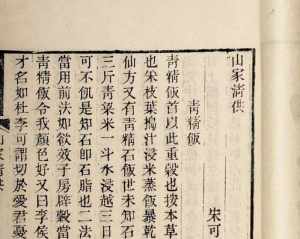 山家清供
宋可
青精飯
青精飯首以此重穀也按本草
也采枝葉搗汁浸米蒸飯暴乾
仙方又有青精石飯世未知石
三斤青粱米一斗水浸越三日
可不飢是知石即石脂也二法
當用前法如欲效子房辟穀當
青精飯令我顏色好又曰李侯
才名如杜李可謂切於愛君憂
山家清供